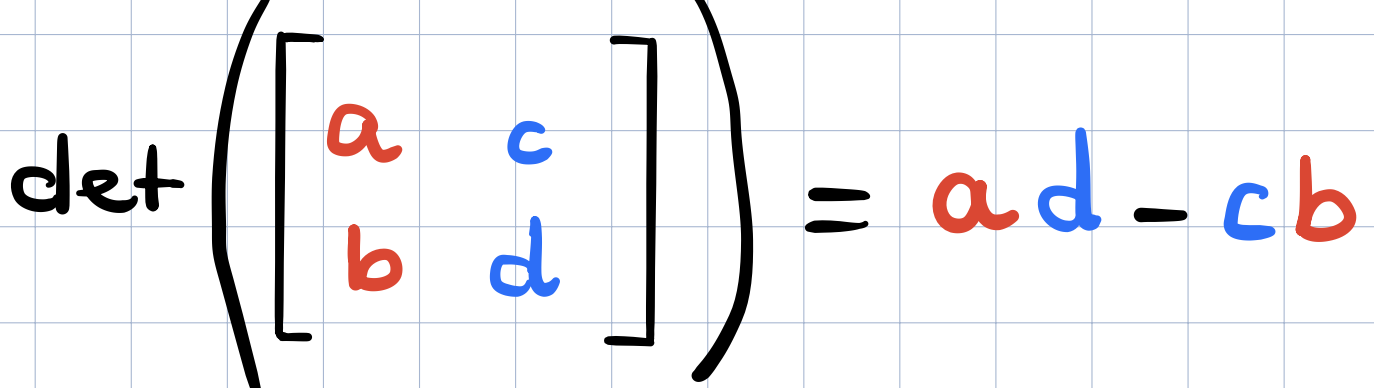 det([a c
b d]) = ad - cb